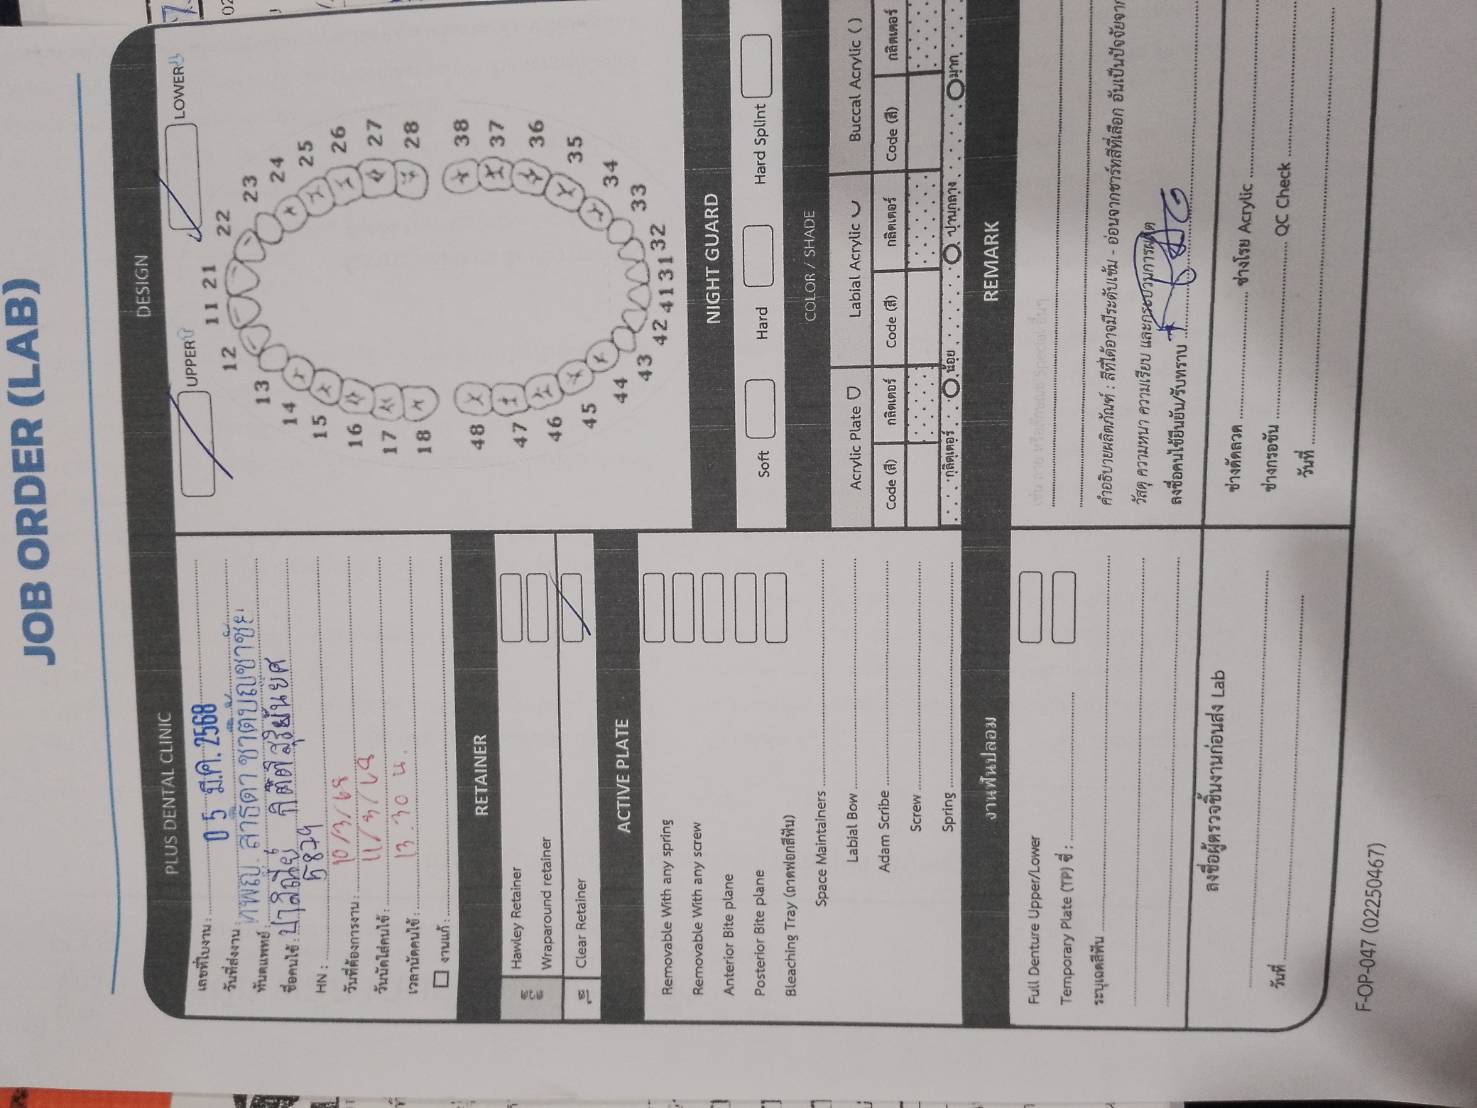 JOB ORDER (LAB)
PLUS DENTAL CLINIC
เลขที่ใบงาน :
วันที่ส่งงาน : 05 มี.ค. 2568
ทันตแพทย์ : ทพญ. สาธิดา ชาติบัญชาชัย
ชื่อคนไข้ :
HN : 5829
วันที่ต้องการงาน : 10/3/68
วันนัดใส่คนไข้ : 11/3/68
เวลานัดคนไข้ : 13.30 น.
งานแก้ :
RETAINER
ลวด
Hawley Retainer
Wraparound retainer
ใส
Clear Retainer
ACTIVE PLATE
Removable With any spring
Removable With any screw
Anterior Bite plane
Posterior Bite plane
Bleaching Tray (ถาดฟอกสีฟัน)
Space Maintainers
Labial Bow
Adam Scribe
Screw
Spring
งานฟันปลอม
Full Denture Upper/Lower
Temporary Plate (TP) ซี่ :
ระบุเฉดสีฟัน
ลงชื่อผู้ตรวจชิ้นงานก่อนส่ง Lab
วันที่
DESIGN
UPPER
LOWER
12 11 21 22
13 23
14 24
15 25
16 26
17 27
18 28
48 38
47 37
46 36
45 35
44 34
43 33
42 41 31 32
NIGHT GUARD
Soft
Hard
Hard Splint
COLOR / SHADE
Acrylic Plate
Labial Acrylic
Buccal Acrylic ( )
Code (สี) กลิตเตอร์ Code (สี) กลิตเตอร์ Code (สี) กลิตเตอร์
กลิตเตอร์ น้อย ปานกลาง มาก
REMARK
คำอธิบายผลิตภัณฑ์ : สีที่ได้อาจมีระดับเข้ม - อ่อนจากชาร์ทสีที่เลือก อันเป็นปัจจัยจาก
วัสดุ ความหนา ความเรียบ และกระบวนการผลิต
ลงชื่อคนไข้ยืนยัน/รับทราบ
ช่างดัดลวด
ช่างโรย Acrylic
ช่างกรอขัด
QC Check
วันที่
F-OP-047 (02250467)